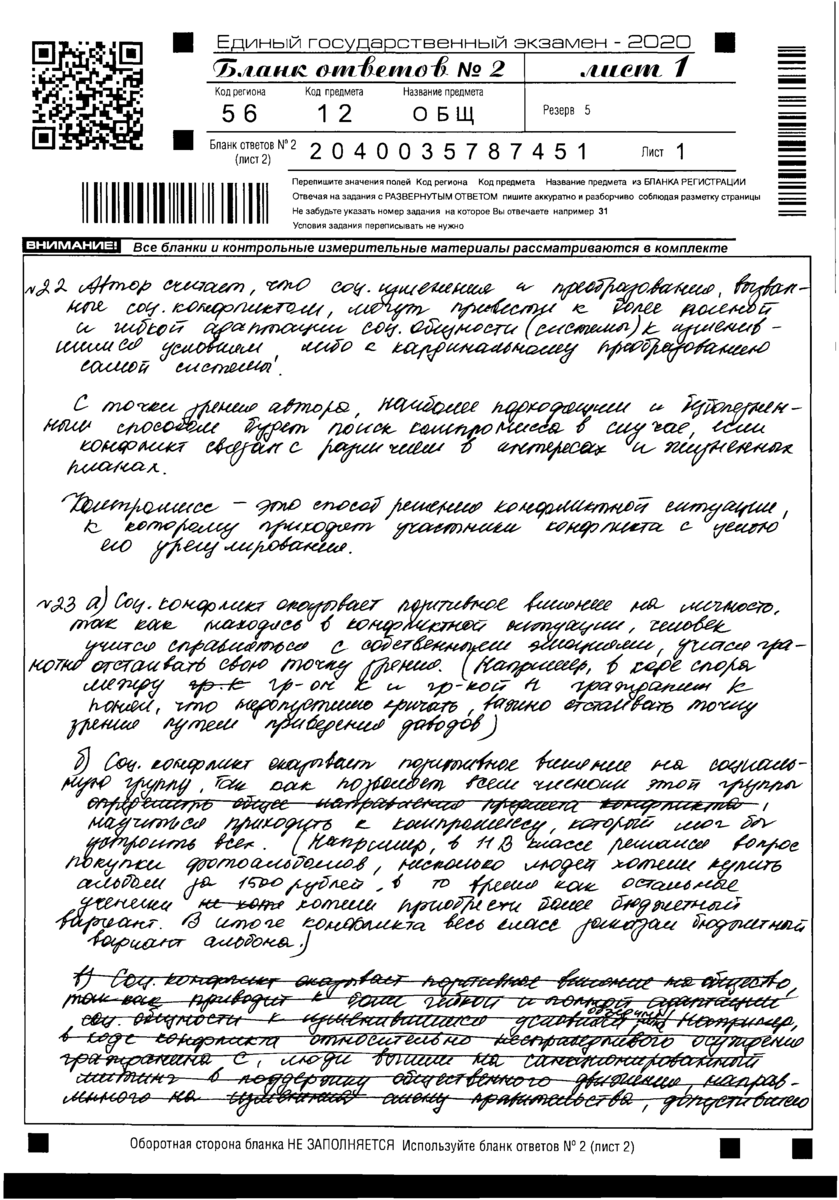 Единый государственный экзамен - 2020
Бланк ответов № 2 лист 1
Код региона Код предмета Название предмета
56 12 ОБЩ Резерв 5
Бланк ответов № 2 (лист 2) 2040035787451 Лист 1
Перепишите значения полей Код региона Код предмета Название предмета из БЛАНКА РЕГИСТРАЦИИ
Отвечая на задания с РАЗВЕРНУТЫМ ОТВЕТОМ пишите аккуратно и разборчиво соблюдая разметку страницы
Не забудьте указать номер задания на которое Вы отвечаете например 31
Условия задания переписывать не нужно
ВНИМАНИЕ! Все бланки и контрольные измерительные материалы рассматриваются в комплекте
№22 Автор считает, что соц. изменения и преобразования, вызван-
ные соц. конфликтом, могут привести к более полной
и гибкой адаптации соц. общности (системы) к изменив-
шимся условиям, либо к кардинальному преобразованию
самой системы.
С точки зрения автора, наиболее подходящим и
ным способом будет поиск компромисса в случае, если
конфликт связан с различием в интересах и жизненных
планах.
Компромисс – это способ решения конфликтной ситуации,
к которому приходят участники конфликта с целью
его урегулирования.
№23 а) Соц. конфликт оказывает позитивное влияние на личность,
так как находясь в конфликтной ситуации, человек
учится справляться с собственными эмоциями, учится гра-
мотно отстаивать свою точку зрения. (Например, в ходе спора
между гр. К гр-он К и гр-кой Н гражданин К
понял, что недопустимо кричать, важно отстаивать точку
зрения путем приведения доводов)
б) Соц. конфликт оказывает позитивное влияние на социаль-
ную группу, так как позволяет всем членам этой группы
определить общее направление предмета конфликта,
научиться приходить к компромиссу, который мог бы
устроить всех. (Например, в 11 В классе решался вопрос
покупки фотоальбомов, несколько людей хотели купить
альбом за 1500 рублей, в то время как остальные
ученики не хоте хотели приобрести более бюджетный
вариант. В итоге конфликта весь класс заказал бюджетный
вариант альбома.)
в) Соц. конфликт оказывает позитивное влияние на общество,
так как приводит к более гибкой и полной адаптации
соц. общности к изменившимся условиям Например,
в ходе конфликта относительно несправедливого осуждения
гражданина С, люди вышли на санкционированный
митинг в поддержку общественного движения, направ-
ленного на изменения смену правительства, допустившего
Оборотная сторона бланка НЕ ЗАПОЛНЯЕТСЯ Используйте бланк ответов № 2 (лист 2)